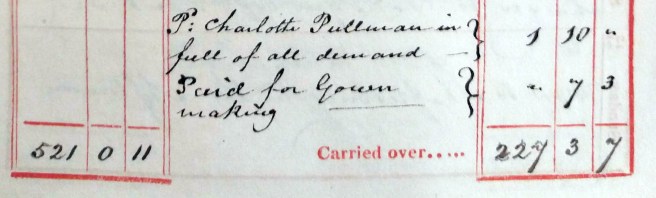 P: Charlotte Pullman in
full of all demand — } 1 10 "
Paid for Gown } " 7 3
making
521 0 11 Carried over..... 227 3 7